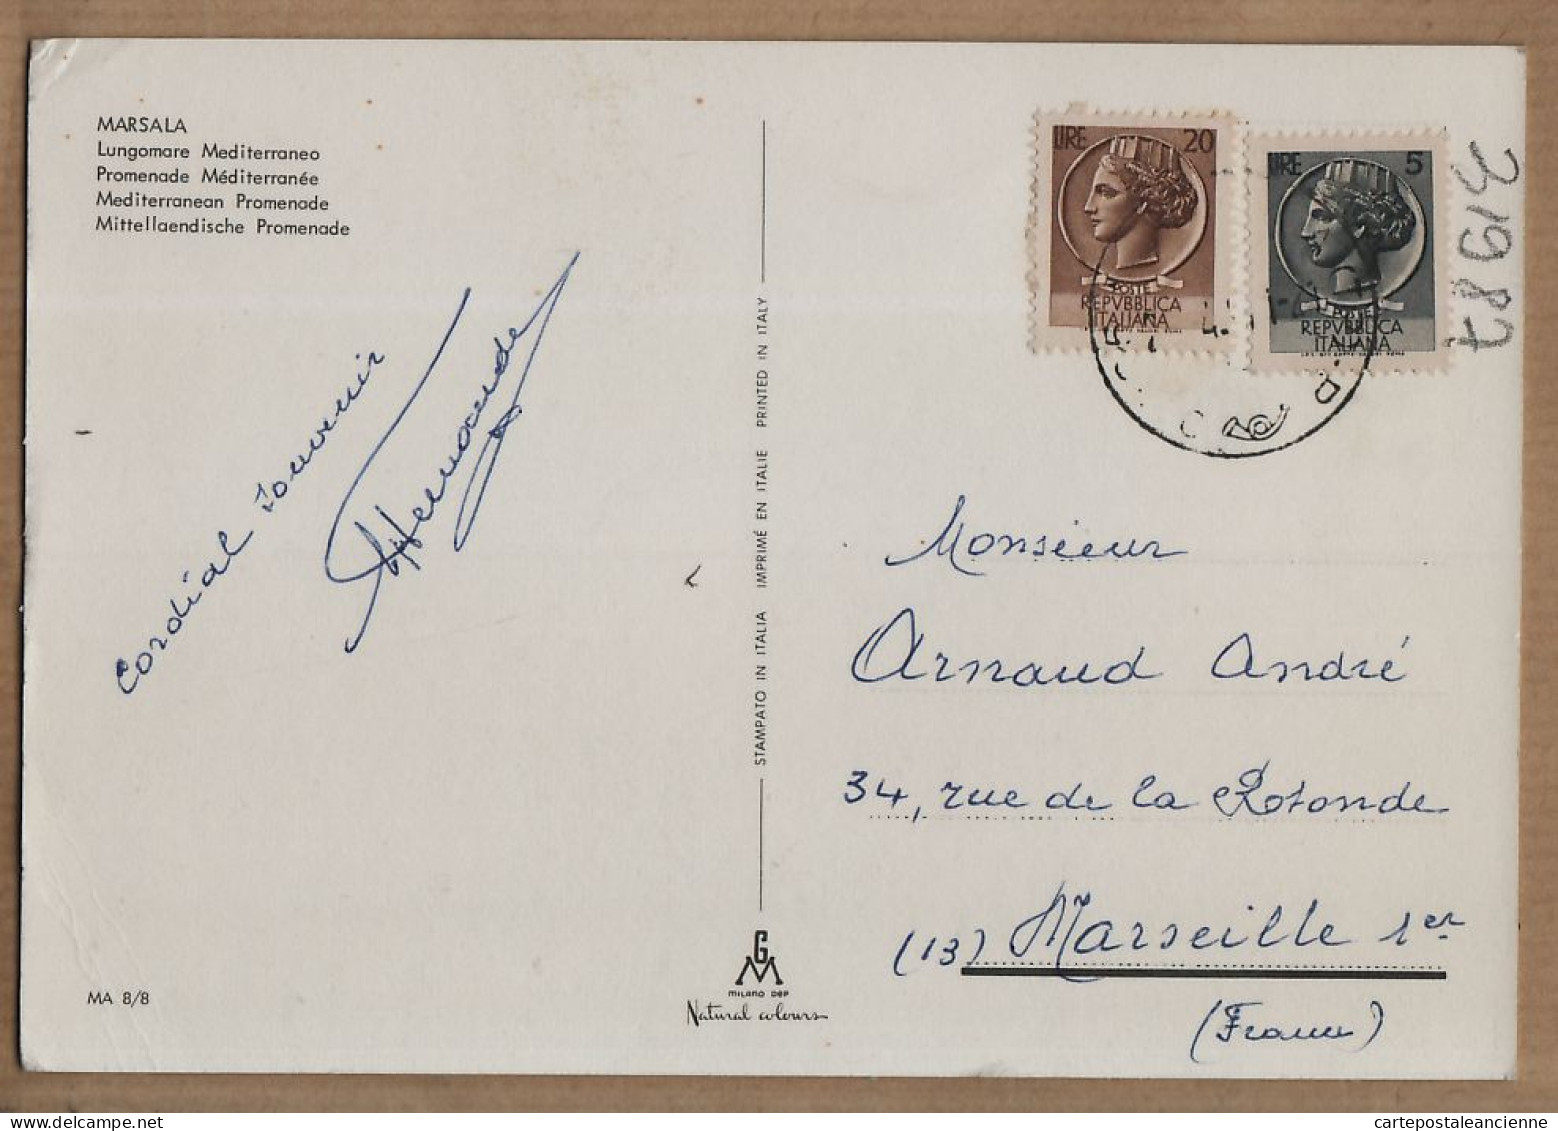 MARSALA
Lungomare Mediterraneo
Promenade Méditerranée
Mediterranean Promenade
Mittellaendische Promenade
Cordial souvenir
MA 8/8
STAMPATO IN ITALIA IMPRIMÉ EN ITALIE PRINTED IN ITALY
GM
MILANO DEP
Natural colours
LIRE 20
POSTE
REPVBBLICA
ITALIANA
LIRE 5
POSTE
REPVBBLICA
ITALIANA
Monsieur
Arnaud André
34, rue de la Rotonde
(13) Marseille 1er
(France)
cartepostaleancienne